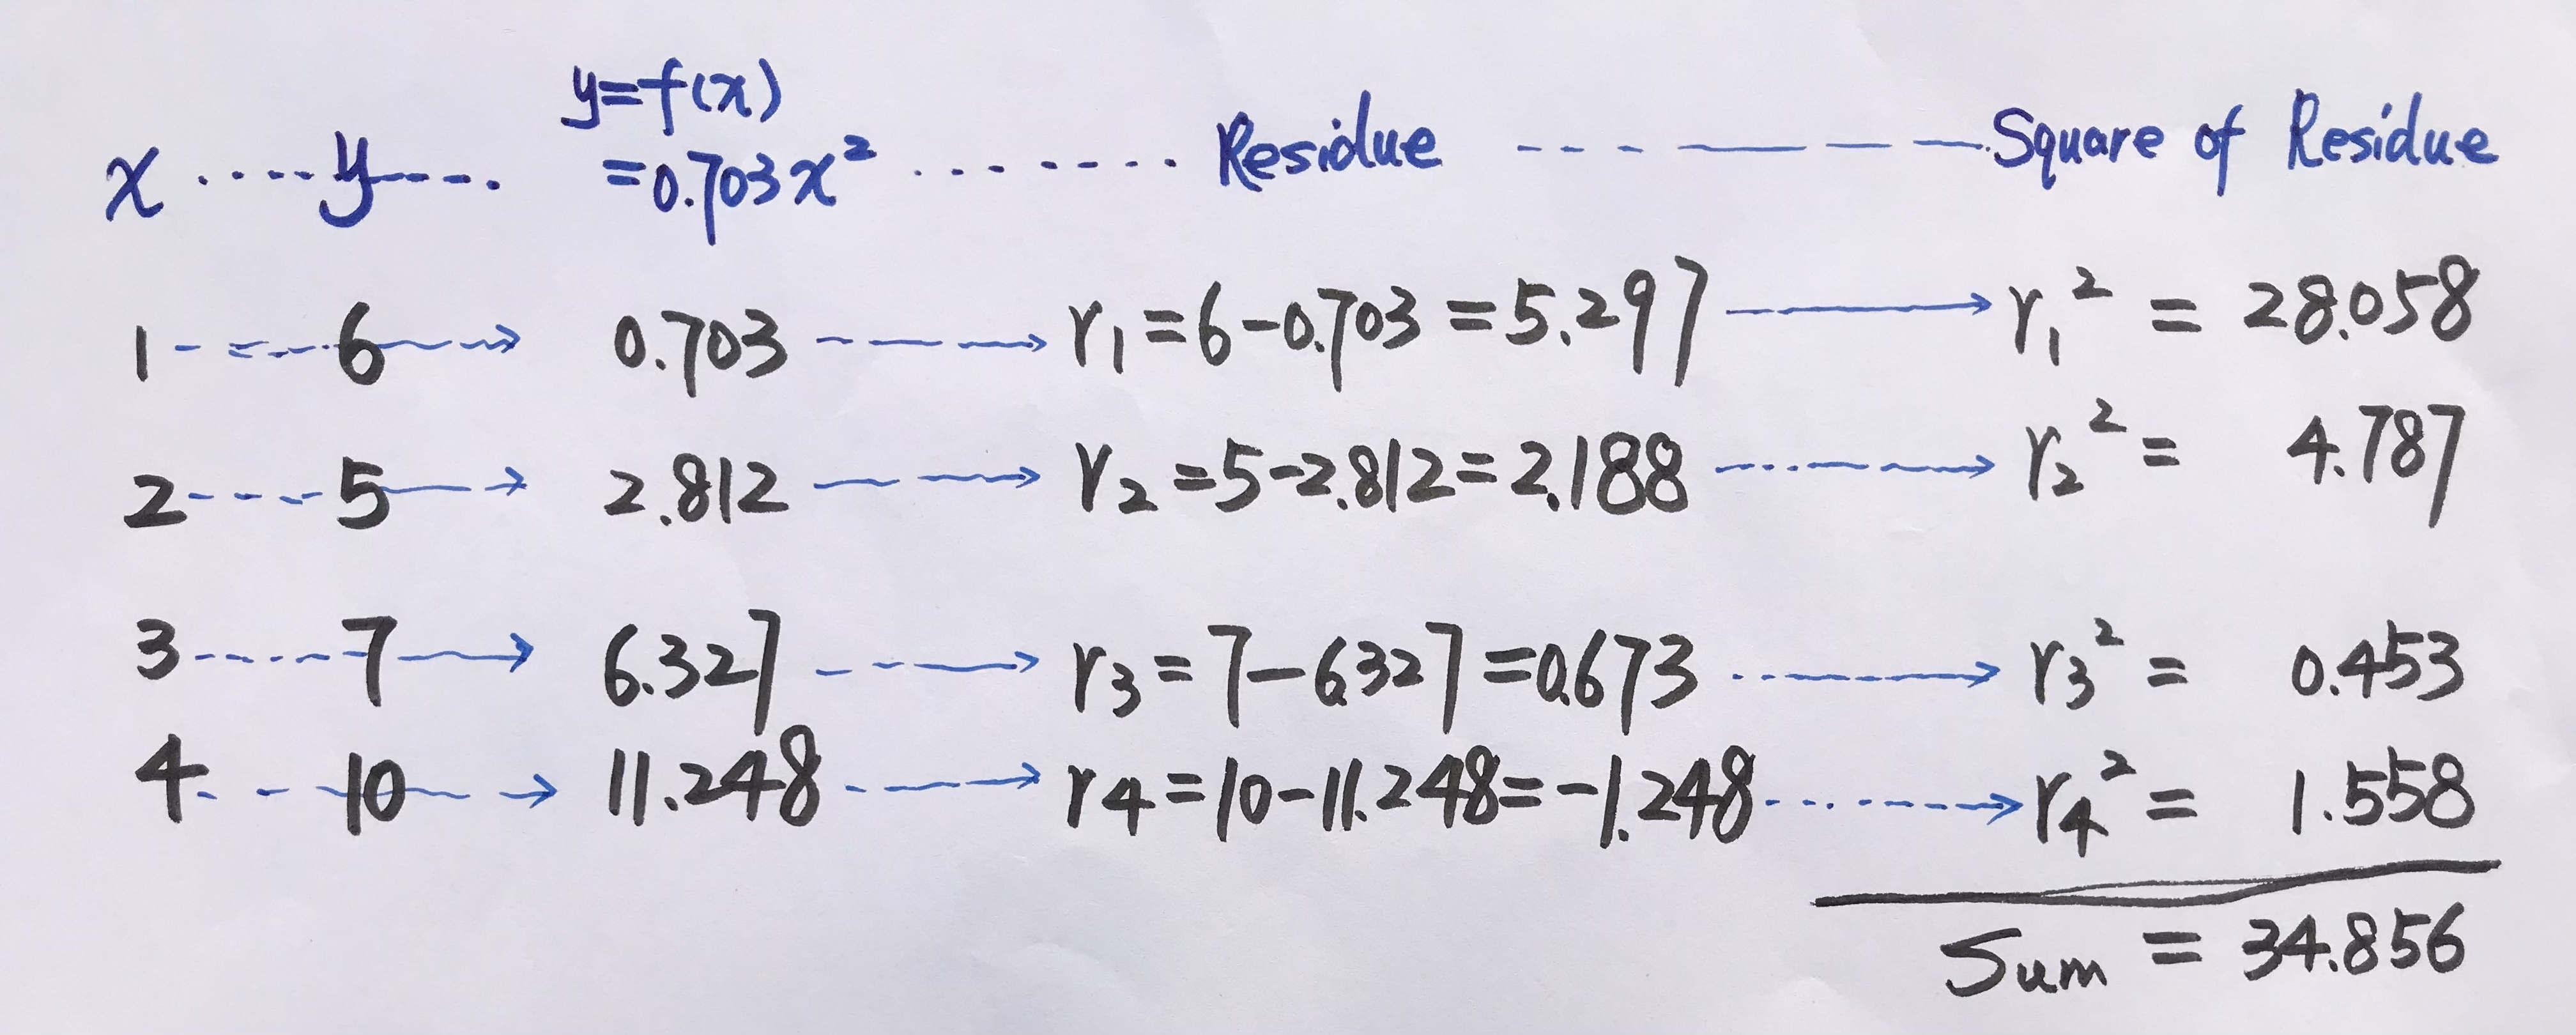 y=f(x)
x ····-- y --·-· =0.703x² ·· ····· Residue - - - — — — Square of Residue
1 6 → 0.703 → r₁=6-0.703=5.297 → r₁² = 28.058
2 5 → 2.812 → r₂=5-2.812=2.188 → r₂² = 4.787
3 7 → 6.327 → r₃=7-6.327=0.673 → r₃² = 0.453
4 10 → 11.248 → r₄=10-11.248=-1.248 → r₄² = 1.558
Sum = 34.856